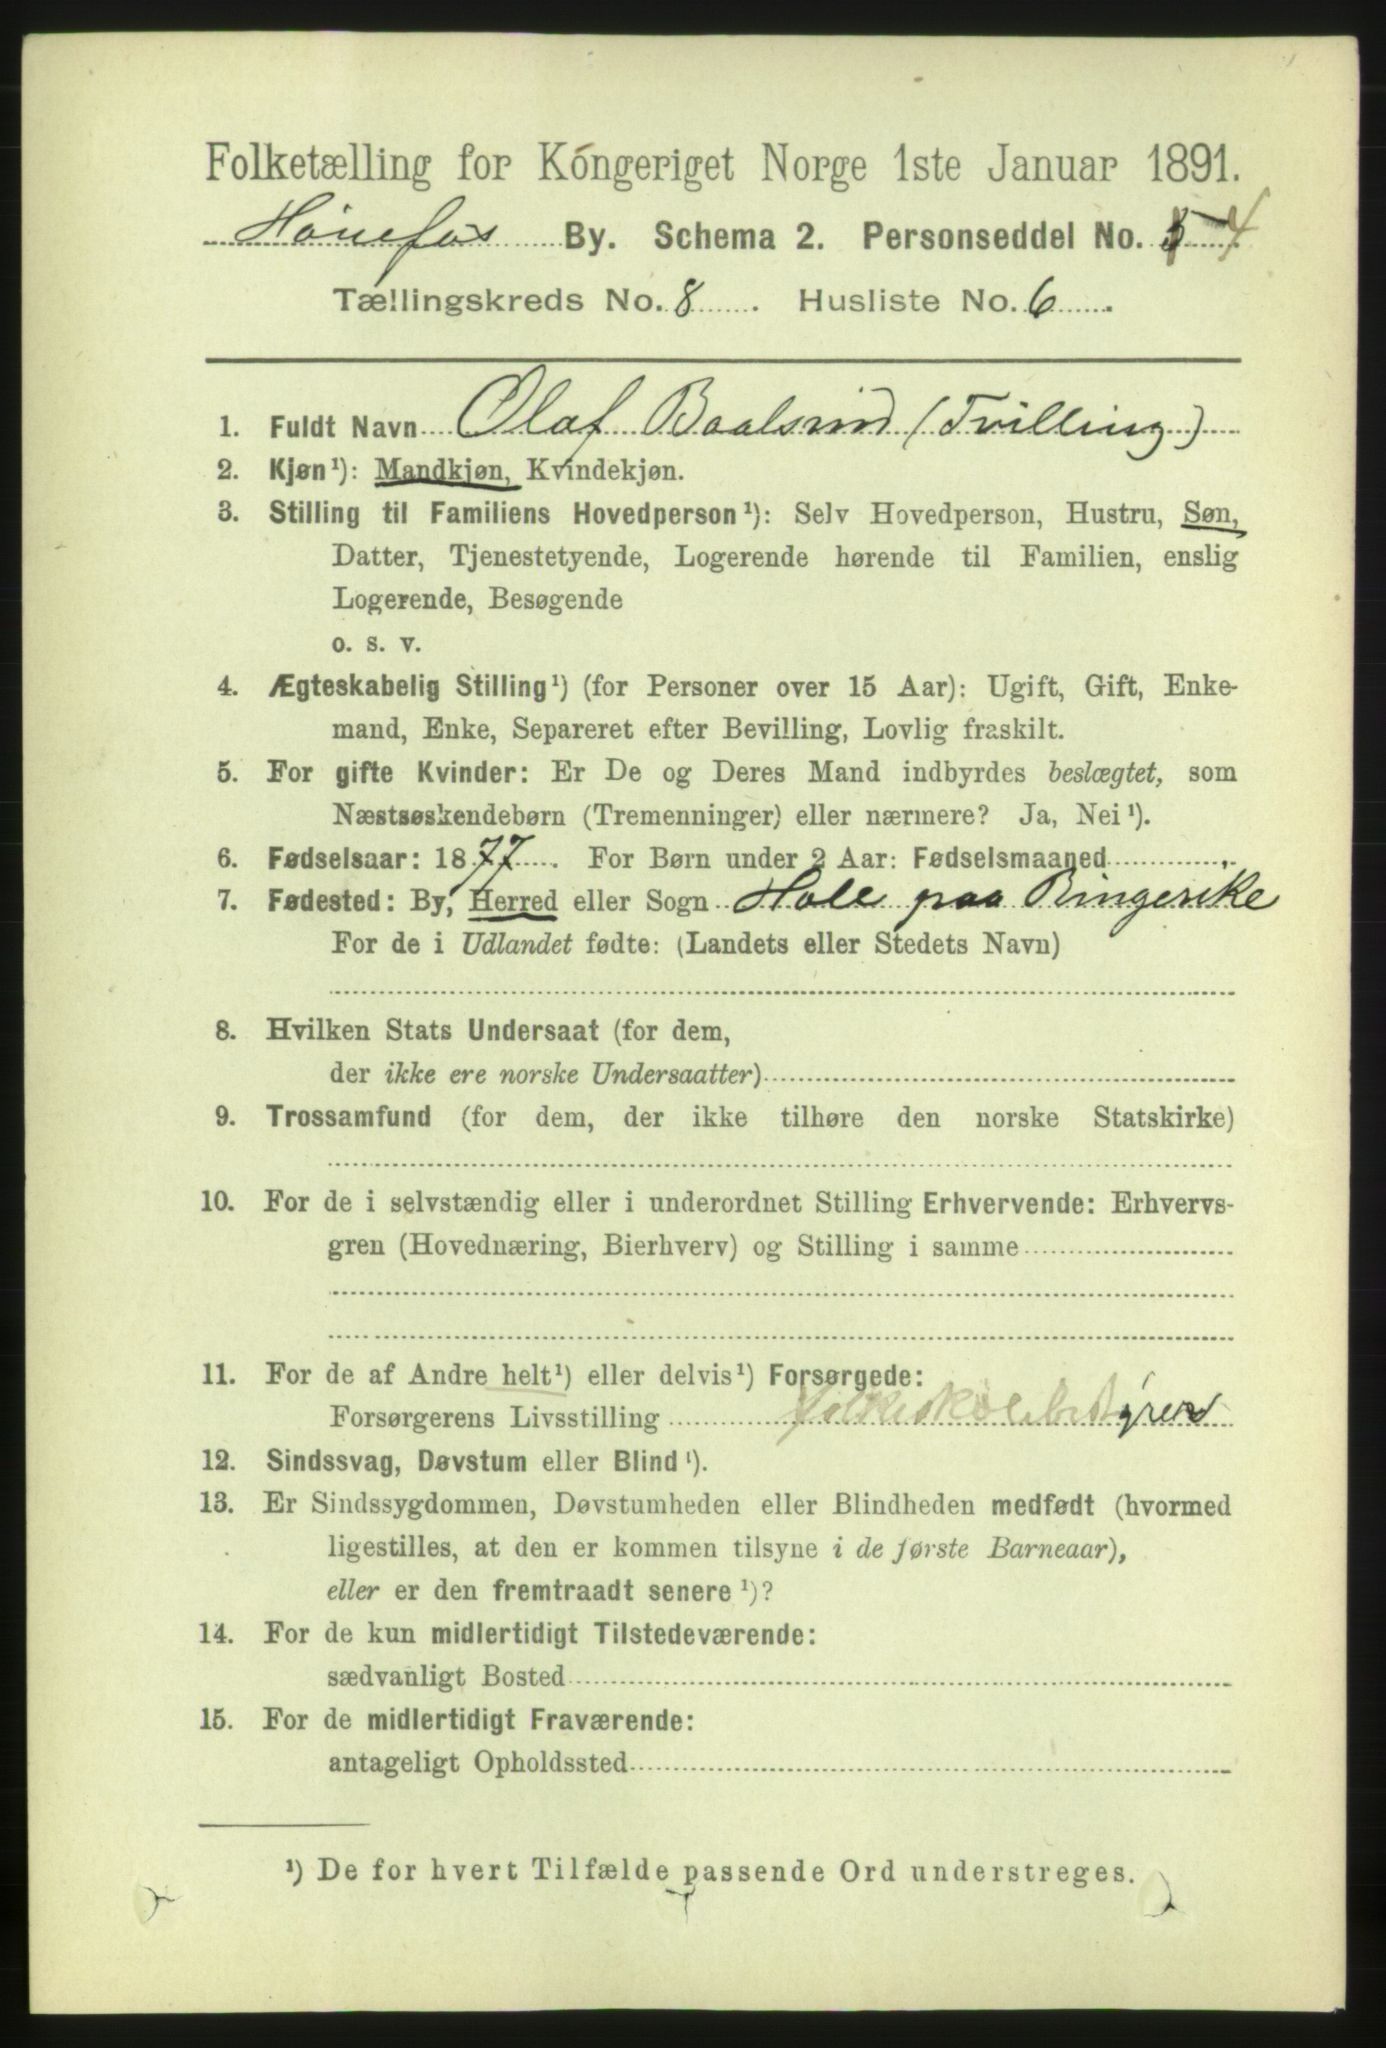 Folketælling for Kongeriget Norge 1ste Januar 1891.
Hönefos By. Schema 2. Personseddel No. 4
Tællingskreds No. 8. Husliste No. 6.
1. Fuldt Navn Olaf Baalsrud (Tvilling)
2. Kjøn¹): Mandkjøn, Kvindekjøn.
3. Stilling til Familiens Hovedperson¹): Selv Hovedperson, Hustru, Søn,
Datter, Tjenestetyende, Logerende hørende til Familien, enslig
Logerende, Besøgende
o. s. v.
4. Ægteskabelig Stilling¹) (for Personer over 15 Aar): Ugift, Gift, Enke-
mand, Enke, Separeret efter Bevilling, Lovlig fraskilt.
5. For gifte Kvinder: Er De og Deres Mand indbyrdes beslægtet, som
Næstsøskendebørn (Tremenninger) eller nærmere? Ja, Nei¹).
6. Fødselsaar: 1877. For Børn under 2 Aar: Fødselsmaaned
7. Fødested: By, Herred eller Sogn Hole paa Ringerike
For de i Udlandet fødte: (Landets eller Stedets Navn)
8. Hvilken Stats Undersaat (for dem,
der ikke ere norske Undersaatter)
9. Trossamfund (for dem, der ikke tilhøre den norske Statskirke)
10. For de i selvstændig eller i underordnet Stilling Erhvervende: Erhvervs-
gren (Hovednæring, Bierhverv) og Stilling i samme
11. For de af Andre helt¹) eller delvis¹) Forsørgede:
Forsørgerens Livsstilling
12. Sindssvag, Døvstum eller Blind¹).
13. Er Sindssygdommen, Døvstumheden eller Blindheden medfødt (hvormed
ligestilles, at den er kommen tilsyne i de første Barneaar),
eller er den fremtraadt senere¹)?
14. For de kun midlertidigt Tilstedeværende:
sædvanligt Bosted
15. For de midlertidigt Fraværende:
antageligt Opholdssted
¹) De for hvert Tilfælde passende Ord understreges.